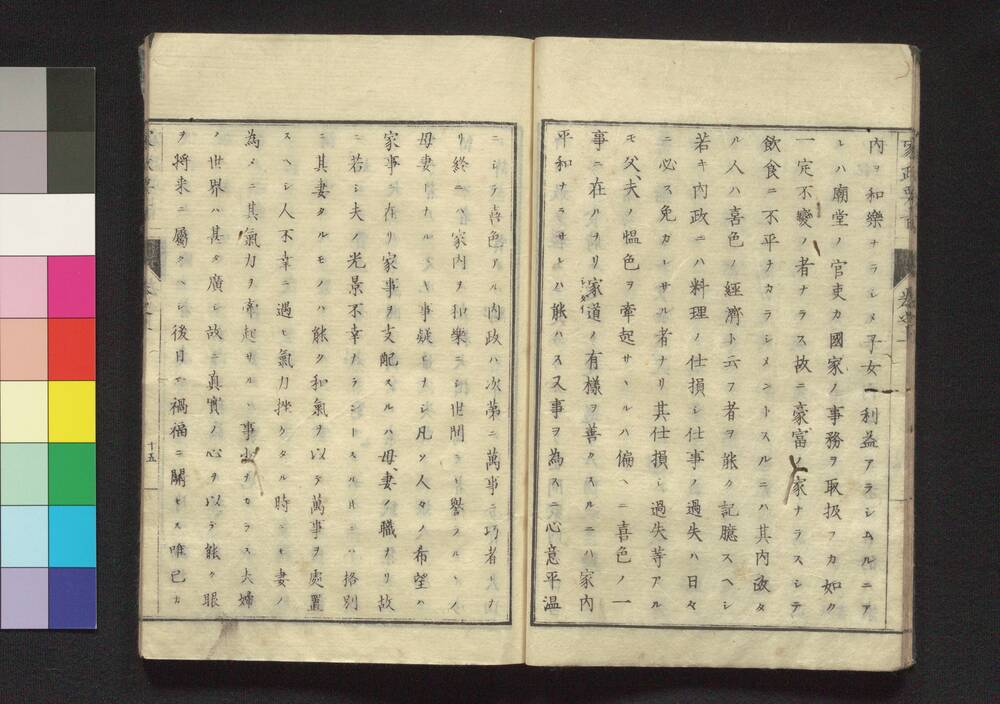 内ヲ和樂ナラシメ子女ニ利益アラシムルニア
レハ廟堂ノ官吏カ國家ノ事務ヲ取扱フカ如ク
一定不變ノ者ナラス故ニ豪富ノ家ナラスシテ
飲食ニ不平ナカラシメントスルニハ其内政タ
ル人ハ喜色ノ經濟ト云フ者ヲ能ク記臆スヘシ
若キ内政ニハ料理ノ仕損シ仕事ノ過失ハ日々
ニ必ス免カレサル者ナリ其仕損シ過失等アル
モ父、夫ノ愠色ヲ牽起サヽルハ偏ヘニ喜色ノ一
事ニ在ハナリ家道ノ有様ヲ善クスルニハ家内
平和ナラサレハ能ハス又事ヲ為スニ心意平温
ニシテ喜色アル内政ハ次第ニ萬事ニ巧者トナ
リ終ニハ家内ヲ和樂ニシ世間ニモ譽ラルヽノ
母妻トナルヘキ事疑ヒナシ凡ソ人タルノ希望ハ
家事ニ在リ家事ヲ支配スルハ母、妻ノ職ナリ故
ニ若シ夫ノ光景不幸ナラントスル時ニハ格別
ニ其妻タルモノハ能ク和氣ヲ以テ萬事ヲ處置
スヘシ人不幸ニ遇ヒ氣力挫クタル時ニモ妻ノ
為メニ其氣力ヲ牽起サルヽ事少ナカラス夫婦
ノ世界ハ甚タ廣シ故ニ真實ノ心ヲ以テ能ク眼
ヲ将来ニ屬クヘシ後日ノ禍福ニ關セス唯已カ
十五